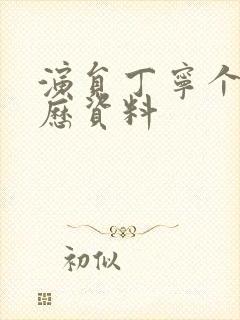 演员丁宁个
历资料
初似